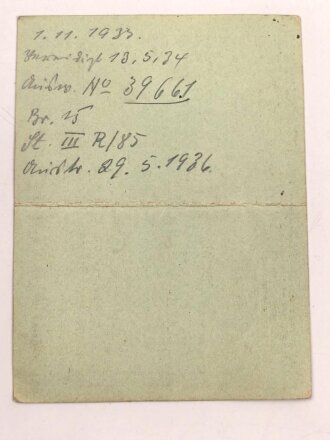 1. 11. 1933.
Vereidigt 13. 5. 34
Ausw. No 39661
Br. 15
St. III R/85
Austr. 29. 5. 1936.